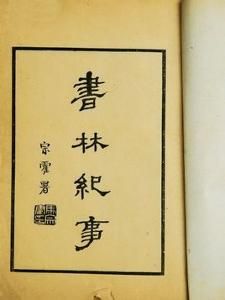 書林紀事
宗霍署